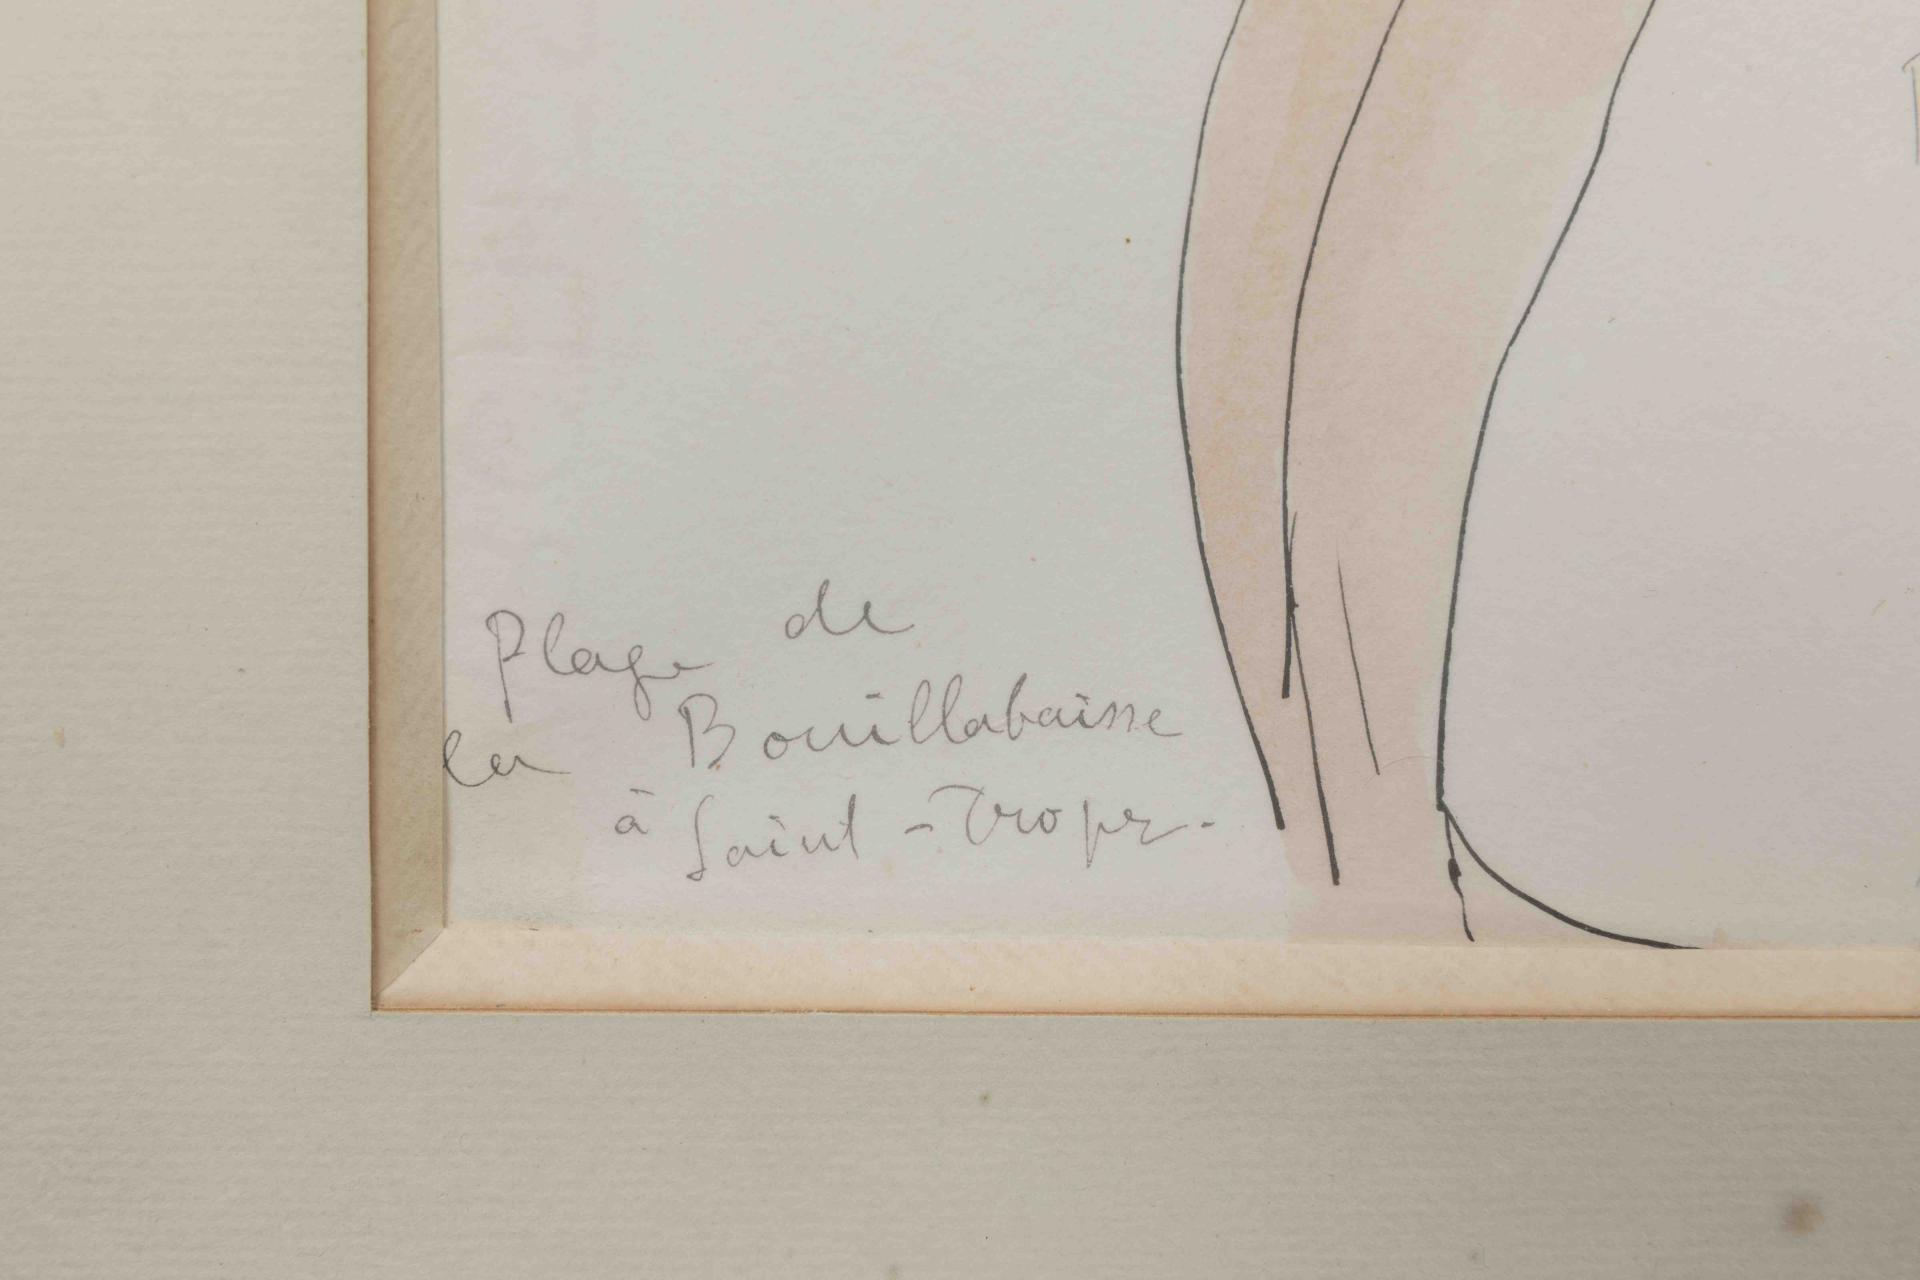 Plage de
la Bouillabaisse
à Saint-Tropez.